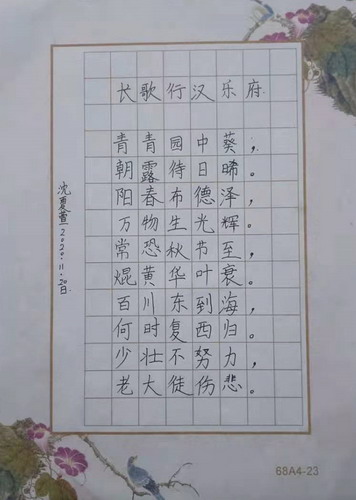 长歌行汉乐府
青青园中葵，
朝露待日晞。
阳春布德泽，
万物生光辉。
常恐秋节至，
焜黄华叶衰。
百川东到海，
何时复西归。
少壮不努力，
老大徒伤悲。
沈夏萱2020.11.20日
68A4-23